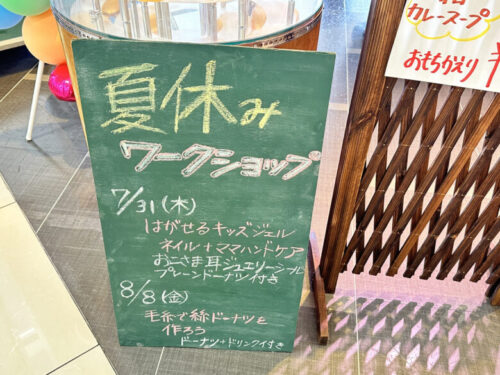 夏休み
ワークショップ
7/31(木)
はがせるキッズジェル
ネイル+ママハンドケア
おこさま耳ジュエリーシール
プレーンドーナツ付き
8/8(金)
毛糸で絲ドーナツを
作ろう
ドーナツ+ドリンク付き
カレースープ
おもちかえり